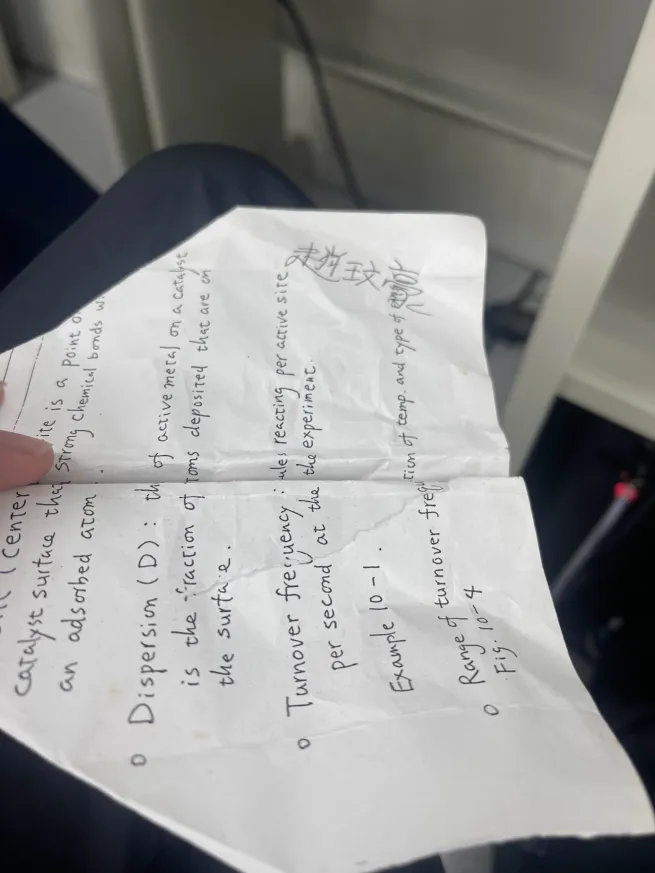 (center
catalyst surface that strong chemical bonds w
an adsorbed atom.
o Dispersion (D): th of active metal on a catalyst
is the fraction of toms deposited that are on
the surface.
o Turnover frequency: ules reacting per active site
per second at the the experiment.
Example 10-1.
o Range of turnover frequ tion of temp. and type of
Fig. 10-4